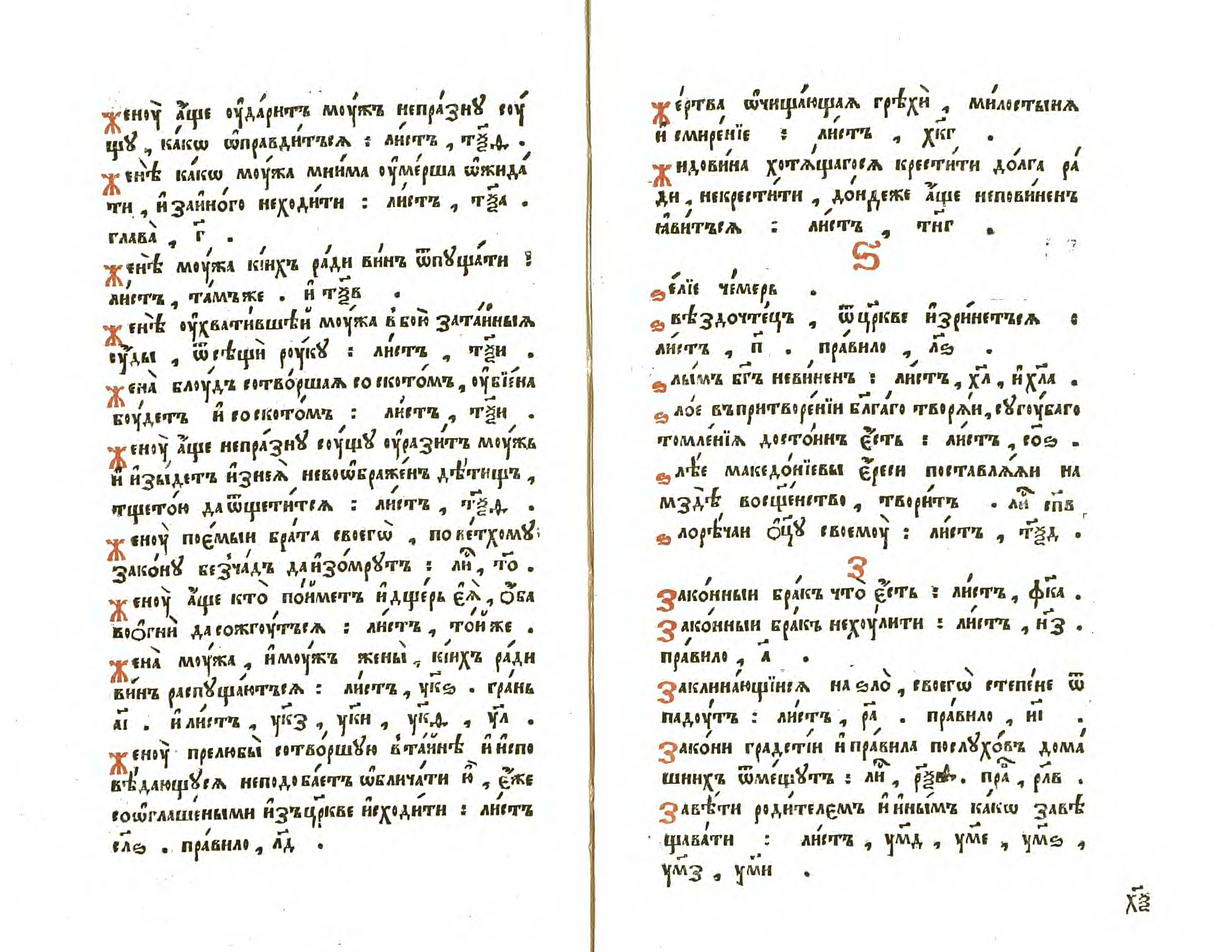 женꙋ̀ а҆́ще оу҆да́ритъ моу́жъ непра́знꙋ соу́
щꙋ , ка́кѡ ѡ҆правди́тъсѧ : ли́стъ , т҃ѯѳ .
женѣ̀ ка́кѡ моу́жа мни́ма оу҆ме́рша ѡ҆жида́
ти , и҆ заи́но́го неходи́ти : ли́стъ , т҃ѯа .
глава̀ , г҃ .
женѣ̀ моу́жа кі́ихъ ра́ди ви́нъ ѿпꙋща́ти :
ли́стъ , та́мъже . и҆ т҃ѯв .
женѣ̀ оу҆хвати́вшѣй моу́жа вбою̀ зата́йныѧ
оу҆́ды , ѿсѣщѝ роу́кꙋ : ли́стъ , т҃ѯи .
жена̀ блоу́дъ сотво́ршаѧ со ското́мъ , оу҆бїе́на
боу́детъ и҆ со ското́мъ : ли́стъ , т҃ѯи .
женꙋ̀ а҆́ще непра́знꙋ соу́щꙋ оу҆рази́тъ моу́жь
и҆ и҆зы́детъ и҆знеѧ̀ невоѡ҆браже́нъ дѣ́тищъ ,
тщето́ю да ѿщети́тсѧ : ли́стъ , т҃ѯѳ .
женꙋ̀ пое́мыи бра́та своегѡ̀ , по ве́тхомꙋ
зако́нꙋ безча́дъ да и҆зо́мрутъ : ли́ , т҃о .
женꙋ̀ а҆́ще кто̀ по́йметъ и҆ дщерь є҆ѧ̀ , о҆́ба
воо҆гнѝ да сожгоу́тъсѧ : ли́стъ , то́й же .
жена̀ моу́жа , и҆ моу́жъ жены̀ , кі́ихъ ра́ди
ви́нъ распꙋща́ютъсѧ : ли́стъ , у҃кѕ . гра́нь
а҃і . и҆ ли́стъ , у҃кз , у҃ки , у҃кѳ , у҃л .
женꙋ̀ прелюбы̀ сотво́ршꙋю вта́йнѣ и҆ и҆спо
вѣ́дающꙋсѧ неподоба́етъ ѡ҆блича́ти ю҆̀ , є҆́же
соѡ҆глаше́ными и҆зъ цр҃кве и҆сходи́ти : ли́стъ
с҃лѕ . пра́вило , л҃д .
же́ртва ѡ҆чища́ющаѧ грѣхѝ , ми́лостынѧ
и҆ смире́нїе : ли́стъ , х҃кг .
жидови́на хотѧ́щагосѧ крести́ти до́лга ра́
ди , некрести́ти , до́ндеже а҆́ще непови́ненъ
ꙗ҆ви́тъсѧ : ли́стъ , т҃нг .
Ѕ
ѕе́лїе че́мерь .
ѕвѣздочте́цъ , ѿцр҃кве и҆зри́нетъсѧ :
ли́стъ , п҃ . пра́вило , л҃ѕ .
ѕлы́мъ бг҃ъ неви́ненъ : ли́стъ , х҃л , и҆ х҃ла .
ѕло́е въпритворе́нїи бл҃га́го творѧ́и , сꙋгоу́баго
томле́нїѧ досто́инъ є҆́сть : ли́стъ , с҃оѕ .
ѕлѣ́е македо́нїевы є҆́реси поставлѧ́ѧи на
мздѣ̀ восще́нство , твори́тъ . ли́ с҃пв
ѕлорѣ́чаи о҆ц҃ꙋ своемоу̀ : ли́стъ , т҃ѯд .
З
зако́нныи бра́къ что̀ є҆́сть : ли́стъ , ф҃ка .
зако́нныи бра́къ нехоу́лити : ли́стъ , н҃з .
пра́вило , а҃ .
заклина́ющїисѧ на ѕло̀ , своегѡ̀ степе́не ѿ
падоу́тъ : ли́стъ , р҃а . пра́вило , и҃і .
зако́ни гра́дстїи и҆ пра́вила послꙋ́хо́въ дома́
шнихъ ѿме́щꙋтъ : ли́ , . пра́ , р҃лв .
завѣ́ти роди́телемъ и҆ и҆ны́мъ ка́кѡ завѣ
щава́ти : ли́стъ , у҃мд , у҃ме , у҃мѕ ,
у҃мз , у҃ми .
х҃ѯ